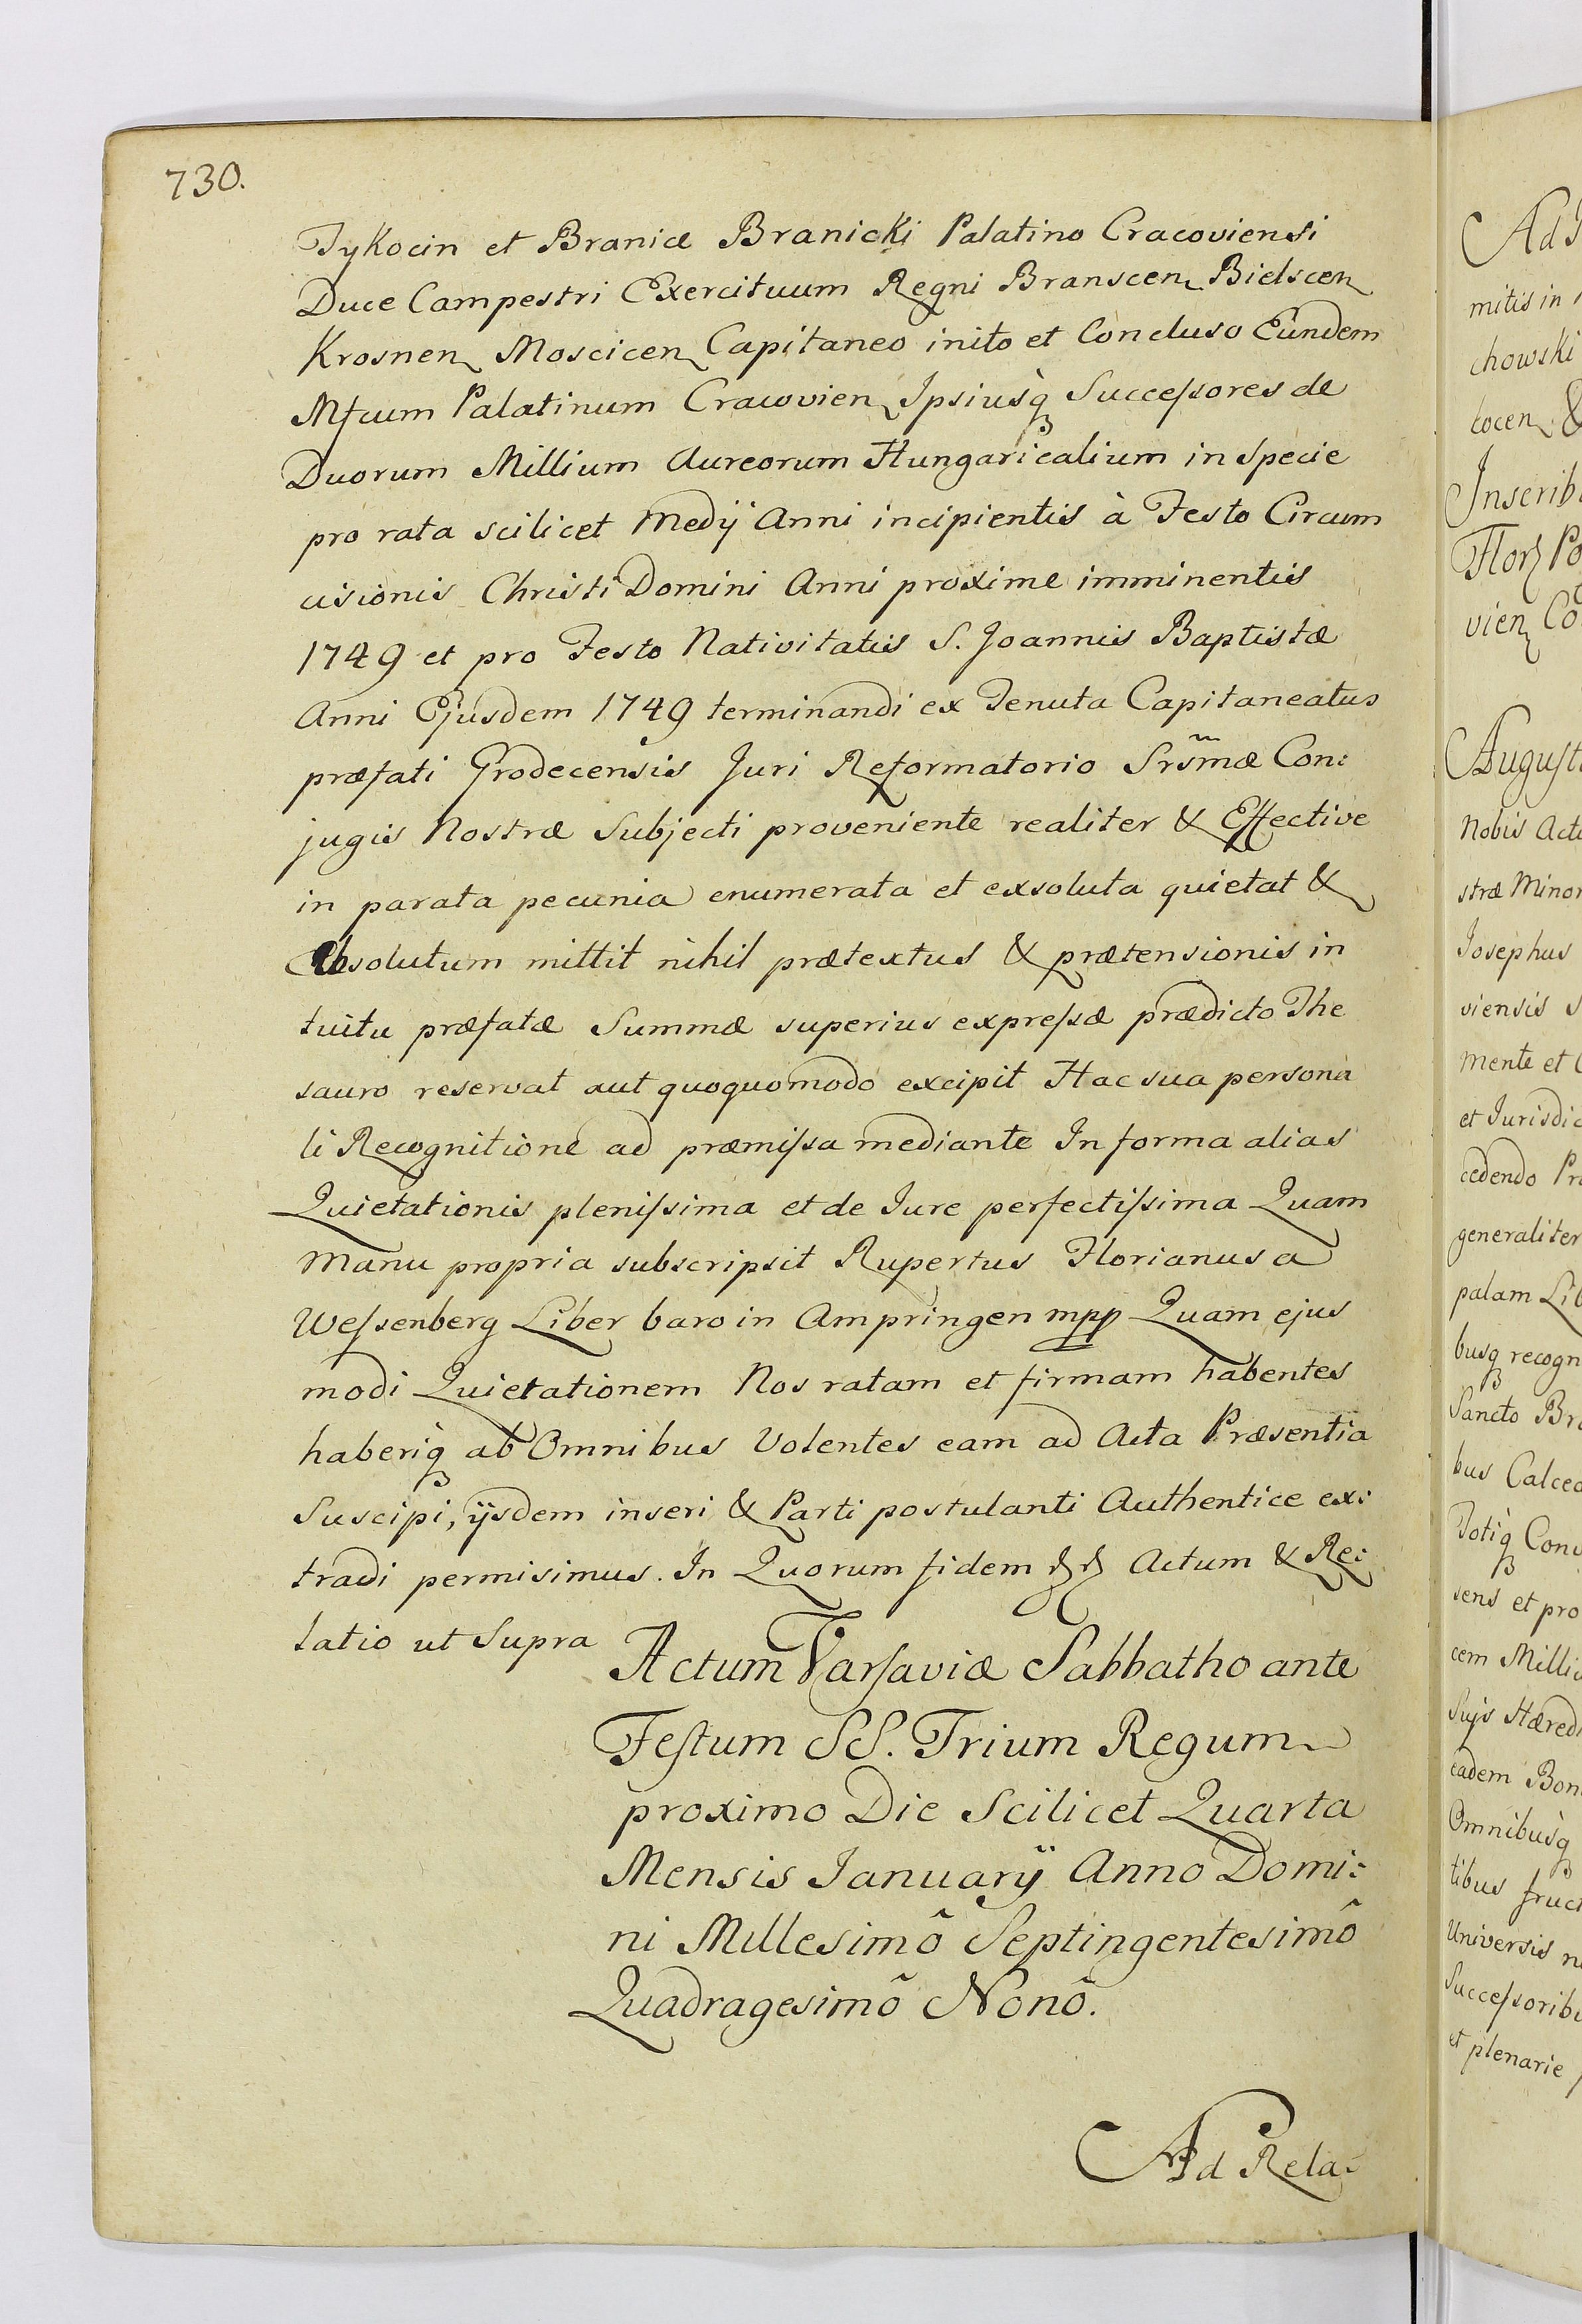 730.
Tykocin et Branice Branicki Palatino Cracoviensi
Duce Campestri Exercituum Regni Branscen Bielscen
Krosnen Moscicen Capitaneo inito et Concluso Eundem
Mfcum Palatinum Cracovien Ipsiusq Succeſsores de
Duorum Millium Aureorum Hungaricalium in specie
pro rata scilicet Medij Anni incipientis à Festo Circum
cisionis Christi Domini Anni proxime imminentis
1749 et pro Festo Nativitatis S. Joannis Baptistæ
Anni Ejusdem 1749 terminandi ex Tenuta Capitaneatus
præfati Grodecensis Juri Reformatorio Srs̃mæ Con:
jugis Nostræ Subjecti proveniente realiter & Effective
in parata pecunia enumerata et exsoluta quietat &
Absolutum mittit nihil prætextus & prætensionis in
tuitu præfatæ Summæ superius expreſsæ prædicto The
sauro reservat aut quoquomodo excipit Hac sua persona
li Recognitione ad præmiſsa mediante In forma alias
Quietationis pleniſsima et de Jure perfectiſsima Quam
Manu propria subscripsit Rupertus Florianus a
Weſsenberg Liber baro in Ampringen mpp Quam ejus
modi Quietationem Nos ratam et firmam habentes
haberiq ab Omnibus Volentes eam ad Acta Præsentia
Suscipi, ijsdem inseri & Parti postulanti Authentice ex:
tradi permisimus. In Quorum fidem Actum & Re:
latio ut Supra
Actum Varſaviæ Sabbatho ante
Feſtum SS. Trium Regum
proximo Die Scilicet Quarta
Mensis Januarÿ Anno Domi:
ni Millesimô Septingentesimô
Quadragesimô Nonô.
Ad Rela:
mitis in
chowski
cocen &
Inscrib
Flor Po
vien Co
Auguſt
Nobis Act
stræ Minor
Josephus
viensis s
Mente et
et Jurisdic
cedendo Pr
generaliter
palam Lib
busq recogn
Sancto Br
bus Calced
Totiq Conv
sens et pro
cem Milli
Suÿs Hæred
eadem Bon
Omnibusq
tibus fruct
Universis n
Succeſsorib
et plenarie